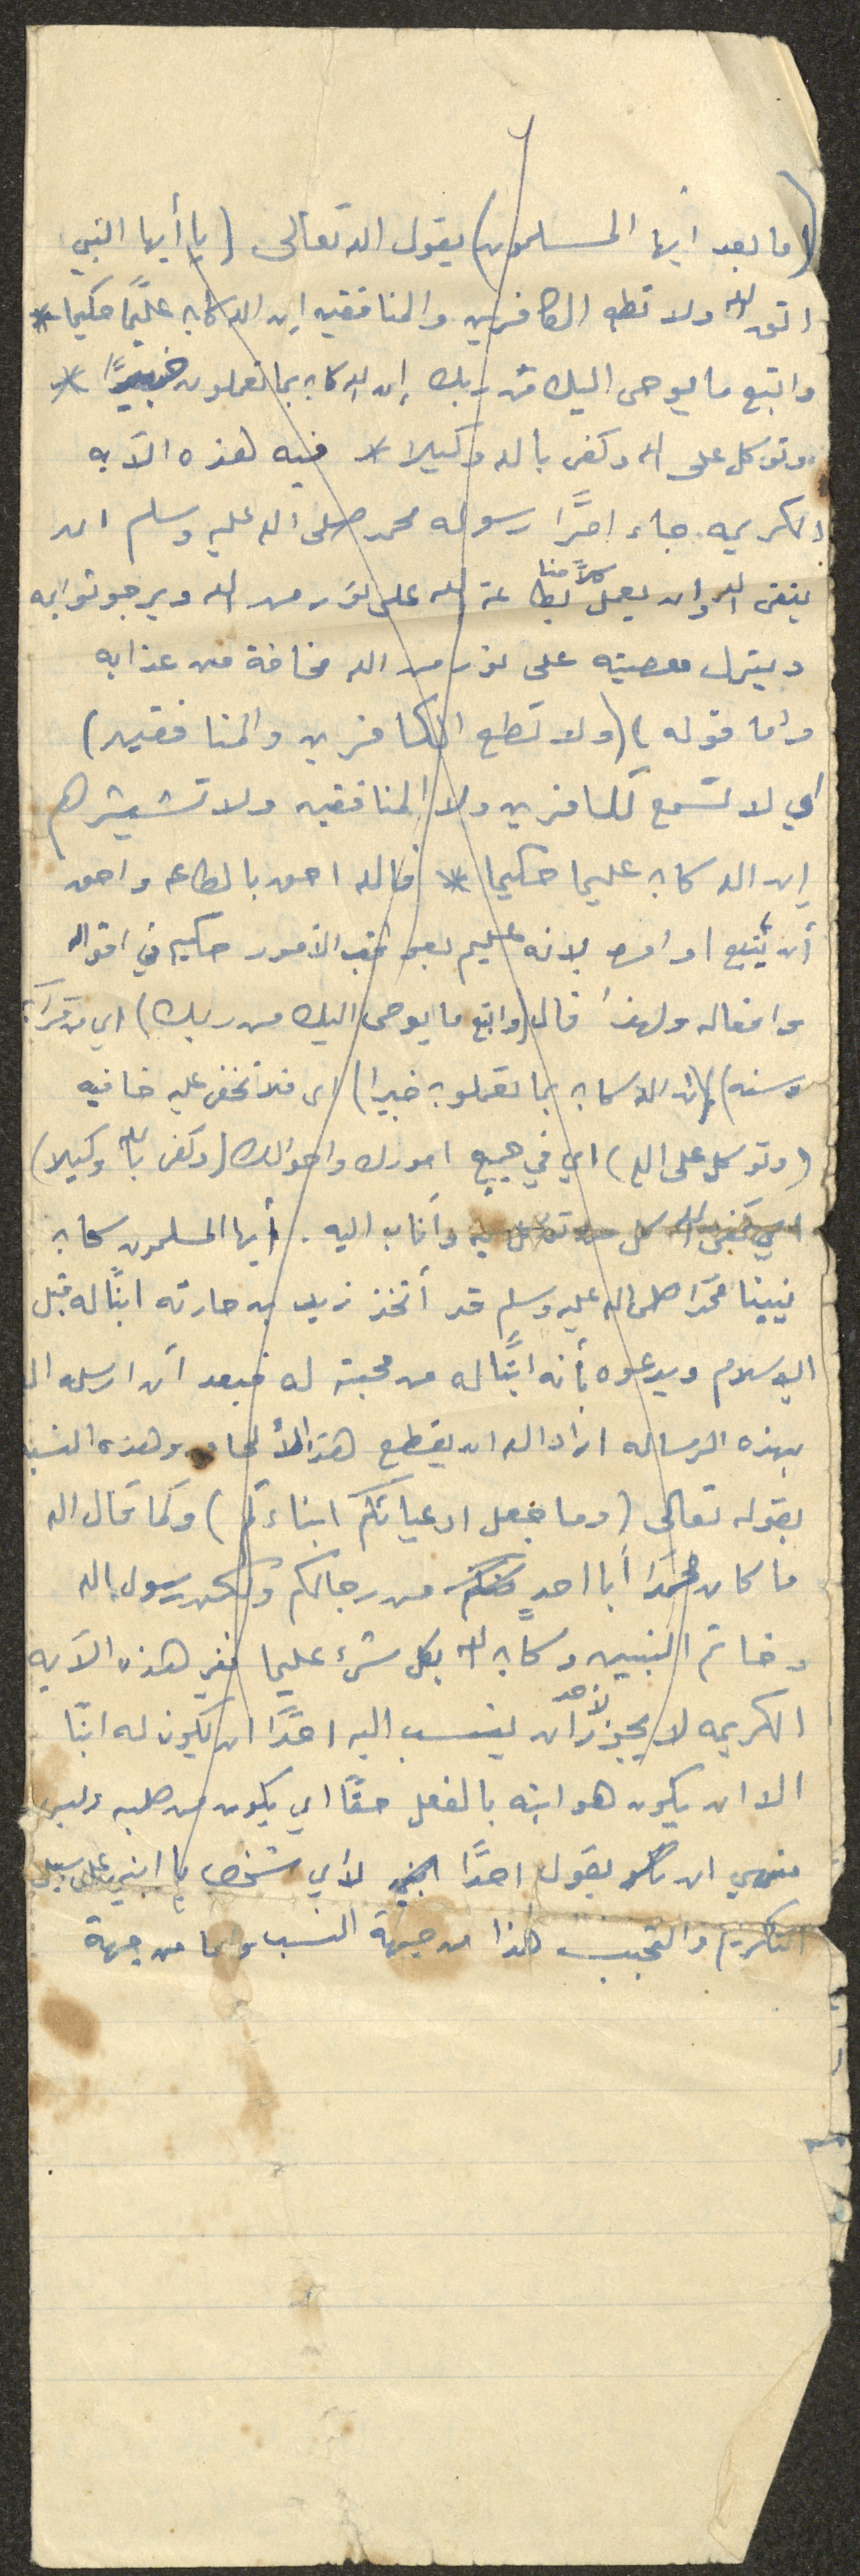 (اما بعد ايها المسلمون) يقول الله تعالى (يا أيها النبي
اتق الله ولا تطع الكافرين والمنافقين إن الله كان عليمًا حكيما *
واتبع ما يوحى اليك من ربك إن الله كان بما تعملون خبيرًا *
وتوكل على الله وكفى بالله وكيلا * فيه هذه الآيه
الكريمه جاء امرًا رسوله محمد صلى الله عليه وسلم ان
يتقى الله وان يعمل كلاً منا بطاعة الله على نور من الله ويرجو ثوابه
ويترك معصيته على نور من الله مخافة من عذابه
واما قوله (ولا تطع الكافرين والمنافقين)
اي لا تسمع للكافرين ولا المنافقين ولا تستشيرهم
إن الله كان عليما حكيما * فالله احق بالطاعه واحق
أن يُتبع اوامره لانه عليم بعواقب الأمور حكيم في اقواله
وافعاله ولهذا قال (واتبع ما يوحى اليك من ربك) اي من قرآن
وسنه) (إن الله كان بما تعملون خبيرا) اى فلا تخفى عليه خافيه
(وتوكل على الله) اي في جميع امورك واحوالك (وكفى بالله وكيلا)
اي كفى الله كل من توكل عليه وأناب اليه . أيها المسلمون كان
نبينا محمدًا صلى الله عليه وسلم قد أتخذ زيد بن حارثه ابنًا له قبل
الإسلام ويدعوه بأنه ابنًا له من محبته له فبعد أن ارسله الله
بهذه الرساله اراد الله ان يقطع هذا الألحاق وهذه النسبه
بقوله تعالى (وما جعل ادعيائكم ابناءكم) وكما قال الله
ما كان محمدًا أبا احدٍ منكم من رجالكم ولكن رسول الله
وخاتم النبيين وكان الله بكل شىء عليما ففي هذه الآيه
الكريمه لا يجوز لأحد أن ينسب اليه احدًا ان يكون له ابنًا
الا ان يكون هو ابنه بالفعل حقًا اي يكون من صلبه وليس
منهي ان يقول احدًا لأي شخص يا ابني على سبيل
التكريم والتحبب هذا من جهة النسب واما من جهة